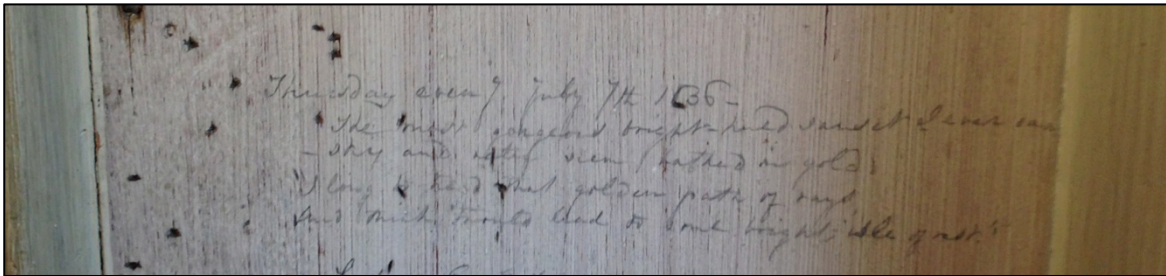 Thursday eveng, July 7th 1836 -
The most gorgeous bright-hued sunset I ever saw
- sky and water seem bathed in gold.
"I long to tread that golden path of rays
And think 'twould lead to some bright isle of rest."